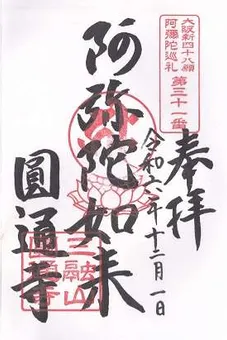 大阪新四十八願
阿彌陀巡礼
第三十一番
奉拝
令和六年十二月一日
阿弥陀如来
圓通寺